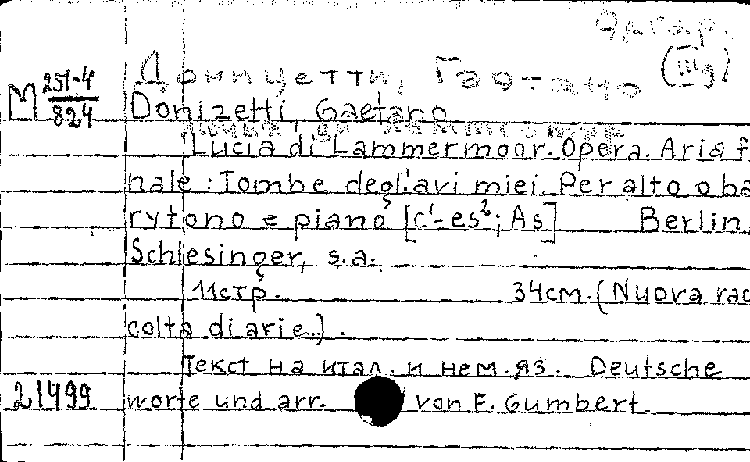 Эдгар.
(III д)
Доницетти, Гаэтано
М 251-4
824
Donizetti, Gaetano
Lucia di Lammermoor. Opera. Aria fi
nale: Tombe degl'avi miei. Per alto o ba
rytono e piano [c¹-es²; As] Berlin,
Schlesinger, s.a.
11стр. 34см. (Nuova rac
colta di arie).
Текст на итал. и нем. яз. Deutsche
21499 worte und arr. von F. Gumbert.